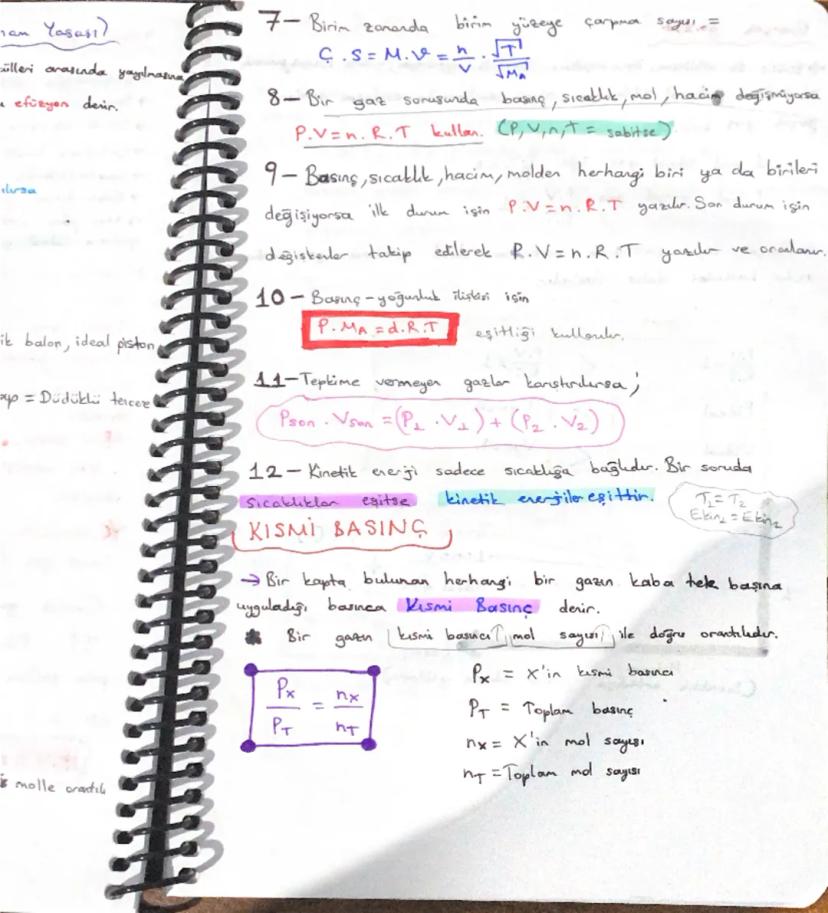 nan Yasası)
külleri arasında yayılmasına
efüzyon denir.
ılırsa
ik balon, ideal piston
= Düdüklü tencere
molle orantılı
7- Birim zamanda birim yüzeye çarpma sayısı =
Ç.S = M.V = n/V . √T/√MA
8- Bir gaz sorusunda basınç, sıcaklık, mol, hacim değişmiyorsa
P.V = n.R.T kullan. (P, V, n, T = sabitse)
9- Basınç, sıcaklık, hacim, molden herhangi biri ya da birileri
değişiyorsa ilk durum için P.V = n.R.T yazılır. Son durum için
değişkenler takip edilerek P.V = n.R.T yazılır ve oranlanır.
10- Basınç-yoğunluk ilişkisi için
P.MA = d.R.T eşitliği kullanılır.
11- Tepkime vermeyen gazlar karıştırılırsa;
Pson . Vson = (P1 . V1) + (P2 . V2)
12- Kinetik enerji sadece sıcaklığa bağlıdır. Bir soruda
sıcaklıklar eşitse kinetik enerjiler eşittir.
T1 = T2
Ekin1 = Ekin2
KISMİ BASINÇ
→ Bir kapta bulunan herhangi bir gazın kaba tek başına
uyguladığı basınca Kısmi Basınç denir.
* Bir gazın kısmi basıncı mol sayısı ile doğru orantılıdır.
PX/PT = nX/nT
PX = X'in kısmi basıncı
PT = Toplam basınç
nX = X'in mol sayısı
nT = Toplam mol sayısı